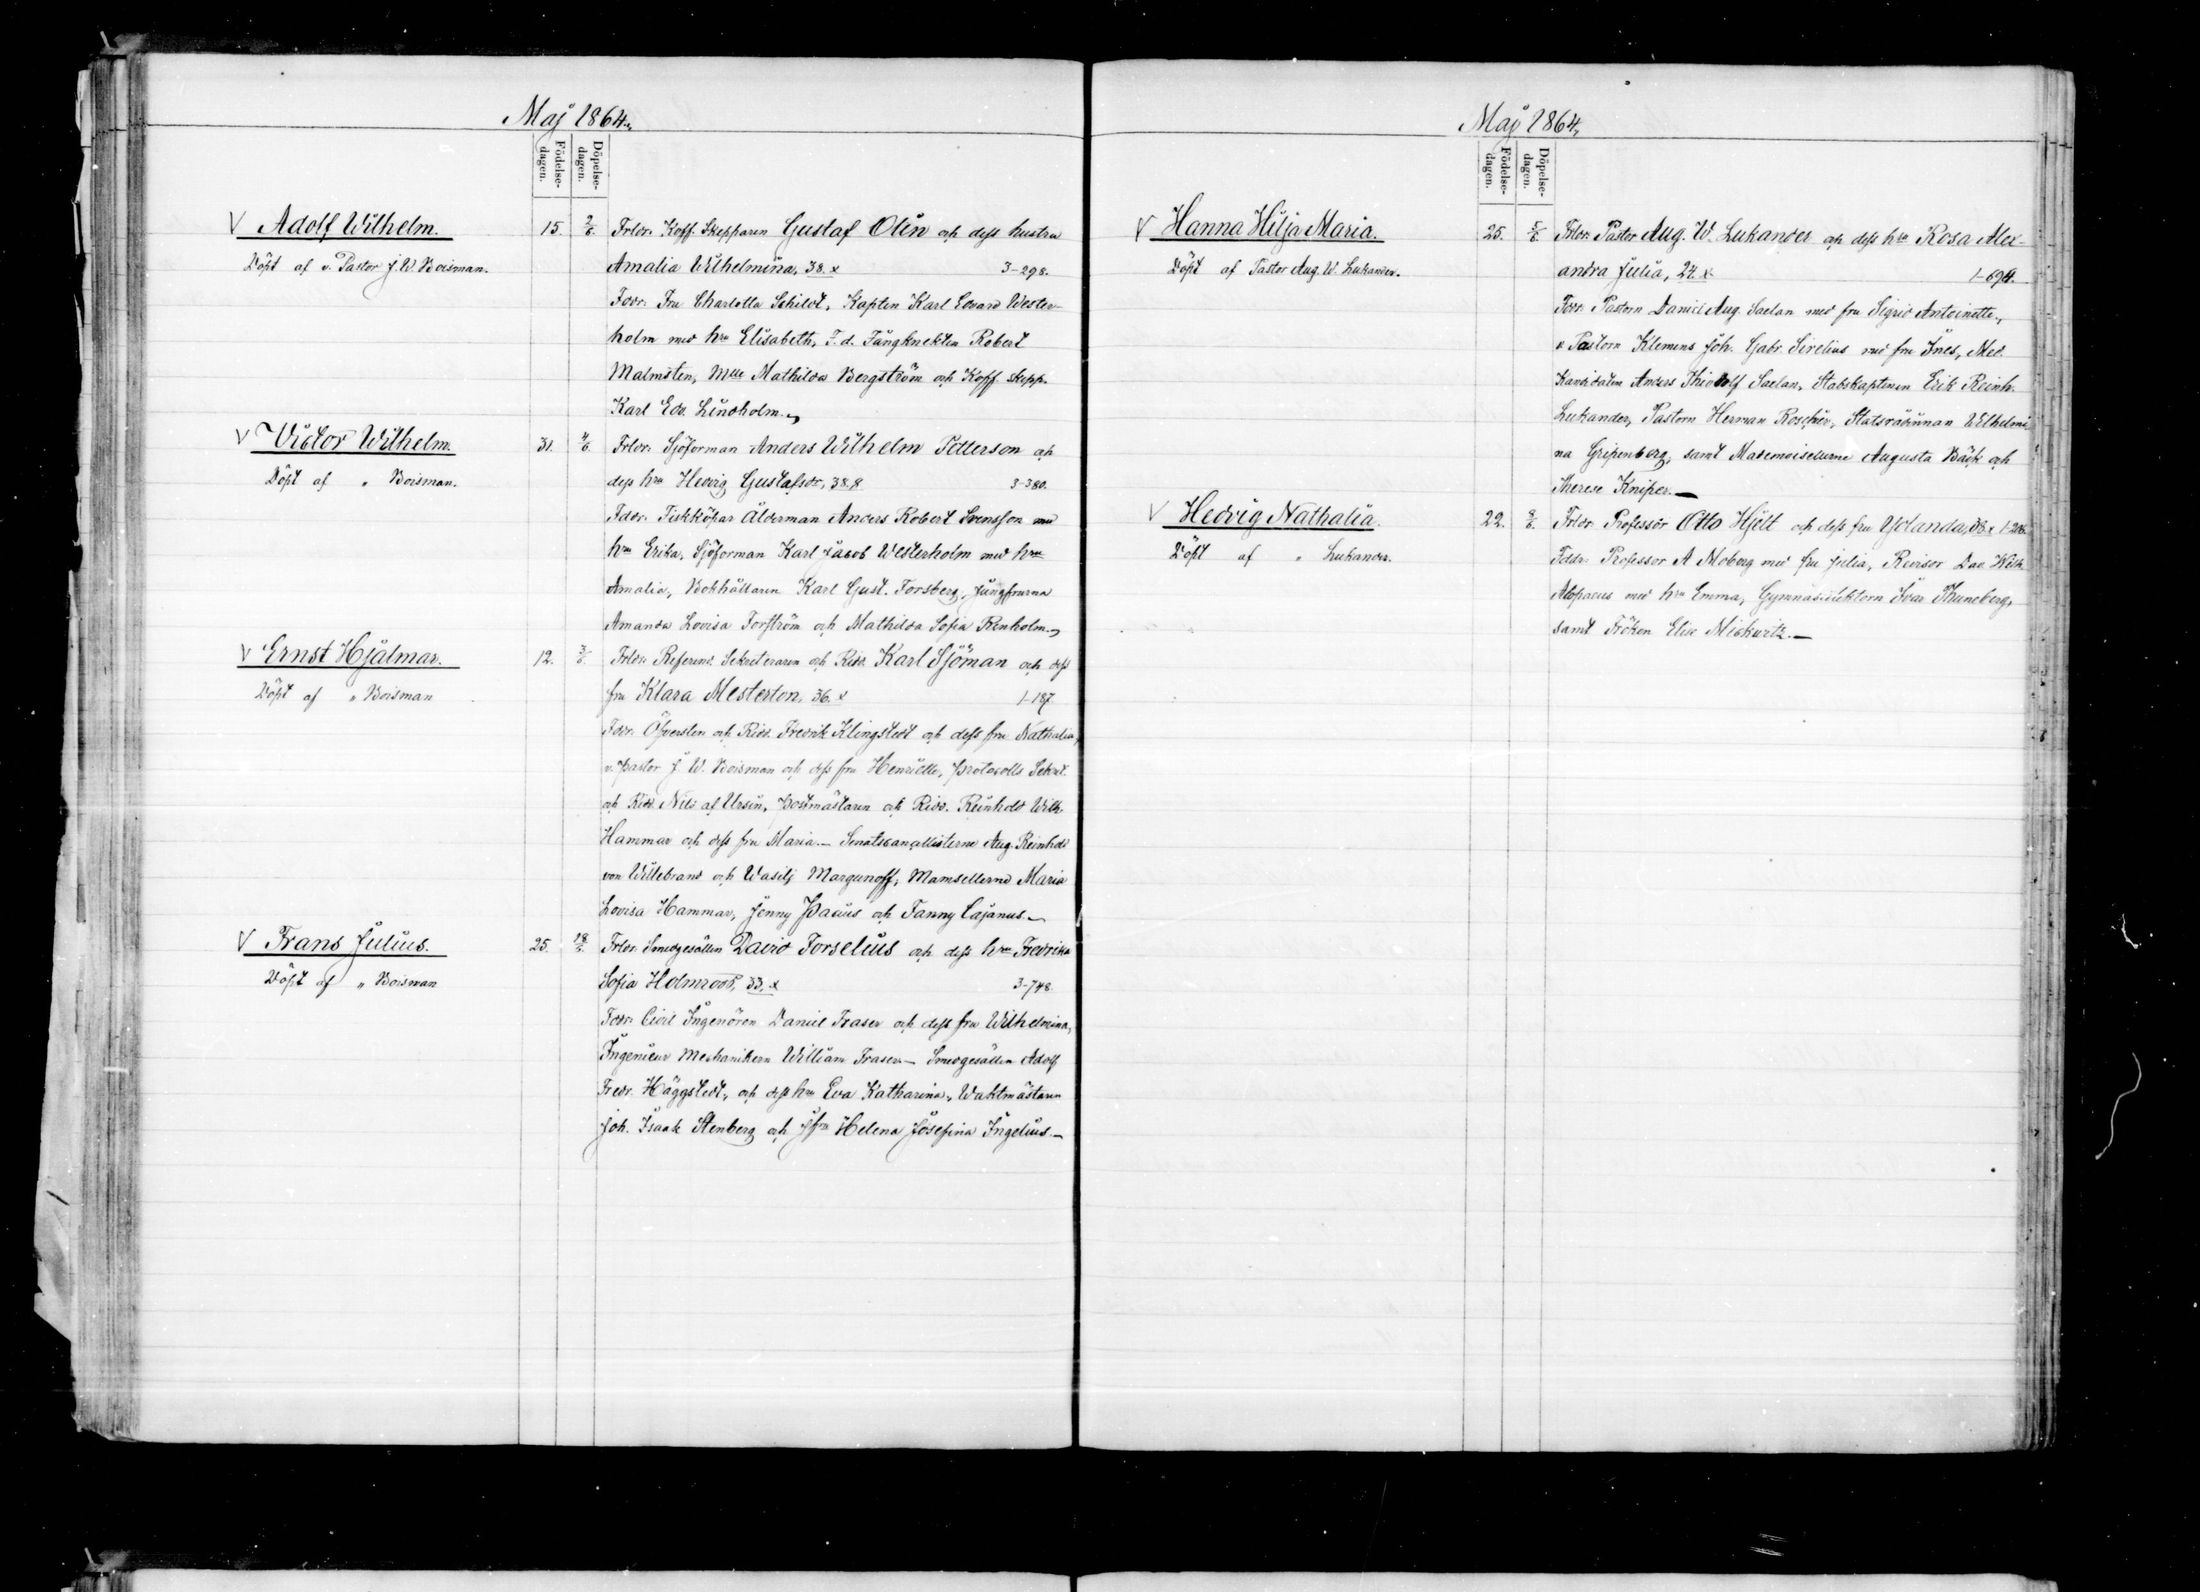 Maj 1864.
Födelse-dagen.
Döpelse-dagen.
V Adolf Wilhelm. 15. 2/6. Frldr: Koff. Skepparen Gustaf Olin och dess hustru
Döpt af v. Pastor J. W. Boisman. Amalia Wilhelmina, 38. x 3-298.
Fddr: Fru Charlotta Schildt, Kapten Karl Edvard Wester-
holm med hru Elisabeth, F.d. Fångknekten Robert
Malmsten, Mlle Mathilda Bergström och Koff. skepp.
Karl Edv. Lindholm.
V Victor Wilhelm. 31. 4/6. Frldr: Sjöforman Anders Wilhelm Petterson och
Döpt af " Boisman. dess hru Hedvig Gustafsdr, 38. 3-380.
Fddr: Fiskköpar Ålderman Anders Robert Svensson med
hru Erika, Sjöforman Karl Jacob Westerholm med hru
Amalia, Bokhållaren Karl Gust. Forsberg, Jungfrurna
Amanda Lovisa Forsström och Mathilda Sofia Renholm.
V Ernst Hjalmar. 12. 3/6. Frldr: Referend. Sekreteraren och Ridd. Karl Sjöman och dess
Döpt af " Boisman fru Klara Mesterton, 36. x 1-187.
Fddr: Öfversten och Ridd. Fredrik Klingstedt och dess fru Nathalia,
v. pastor J. W. Boisman och dess fru Henriette, protocolls Sekret.
och Ridd. Nils af Ursin, postmästaren och Ridd. Reinhold Wilh.
Hammar och dess fru Maria.— Senatscancellisterne Aug. Reinhold
von Willebrand och Wasilj Margunoff, Mamsellerne Maria
Lovisa Hammar, Jenny Pacius och Fanny Cajanus.—
V Frans Julius. 25. Frldr: Smedgesällen David Forselius och dess hru Fredrika
Döpt af " Boisman Sofia Holmroos, 33. x 3-748.
Fddr: Civil Ingenören Daniel Fraser och dess fru Wilhelmina,
Ingenieur Mechanikern William Fraser.— Smedgesällen Adolf
Fredr. Häggstedt, och dess hru Eva Katharina, Waktmästaren
Joh. Isaak Stenberg och Jfru Helena Josefina Ingelius.—
Maj 1864.
Födelse-dagen.
Döpelse-dagen.
V Hanna Hilja Maria. 25. 5/6. Frldr: Pastor Aug. W. Lukander och dess hru Rosa Alex-
Döpt af Pastor Aug. W. Lukander. andra Julia, 24. x 1-694.
Fddr: Pastorn Daniel Aug. Saelan med fru Sigrid Antoinette,
v. Pastorn Klemens Joh. Gabr. Sirelius med fru Ines, Med.
Kandidaten Anders Thiodolf Saelan, Stabskaptenen Erik Reinh.
Lukander, Pastorn Herman Roschier, Statsrådinnan Wilhelmi-
na Gripenberg, samt Mademoisellerne Augusta Bäck och
Therese Kniper.—
V Hedvig Nathalia. 22. 8/6. Frldr: Professor Otto Hjelt och dess fru Yolanda,
Döpt af " Lukander. Fddr: Professor A Moberg med fru Julia, Revisor Dav. Wilh.
Alopaeus med hru Emma, Gymnasiilektorn Ivar Thuneberg,
samt Fröken Elise Mickwitz.—